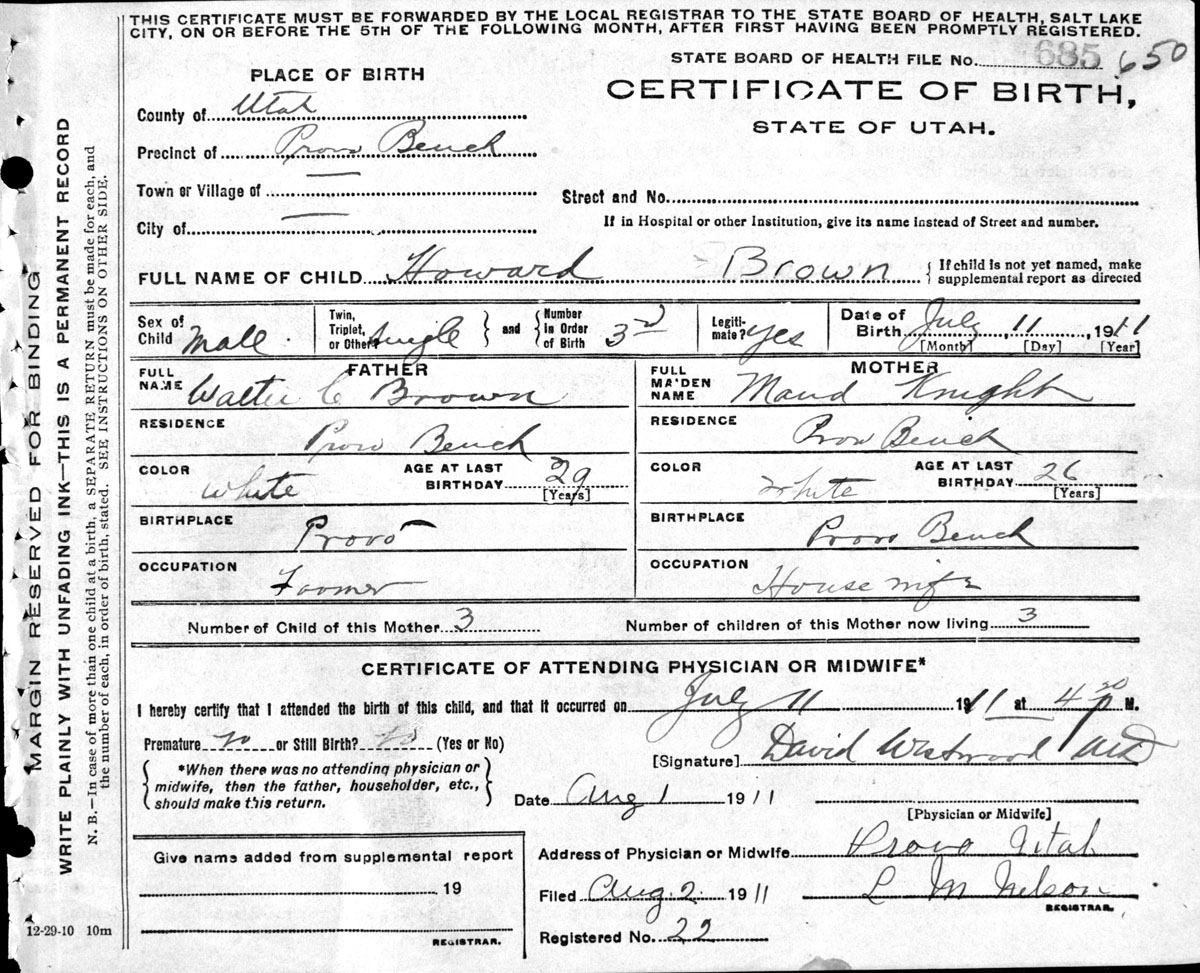 THIS CERTIFICATE MUST BE FORWARDED BY THE LOCAL REGISTRAR TO THE STATE BOARD OF HEALTH, SALT LAKE
CITY, ON OR BEFORE THE 5TH OF THE FOLLOWING MONTH, AFTER FIRST HAVING BEEN PROMPTLY REGISTERED.
STATE BOARD OF HEALTH FILE No. 685 650
PLACE OF BIRTH
CERTIFICATE OF BIRTH,
STATE OF UTAH.
County of Utah
Precinct of Provo Bench
Town or Village of —
Street and No.
City of —
If in Hospital or other Institution, give its name instead of Street and number.
FULL NAME OF CHILD Howard Brown { If child is not yet named, make
supplemental report as directed
Sex of Child Male
Twin, Triplet, or Other? Single } and { Number in Order of Birth 3rd
Legiti-mate? Yes
Date of Birth July, 11, 1911
[Month] [Day] [Year]
FATHER
FULL NAME Walter C Brown
MOTHER
FULL MAIDEN NAME Maud Knight
RESIDENCE Provo Bench
RESIDENCE Provo Bench
COLOR White AGE AT LAST BIRTHDAY 29 [Years]
COLOR White AGE AT LAST BIRTHDAY 26 [Years]
BIRTHPLACE Provo
BIRTHPLACE Provo Bench
OCCUPATION Farmer
OCCUPATION Housewife
Number of Child of this Mother 3 Number of children of this Mother now living 3
CERTIFICATE OF ATTENDING PHYSICIAN OR MIDWIFE*
I hereby certify that I attended the birth of this child, and that it occurred on July 11 1911 at 4 20 P M.
Premature no or Still Birth? no (Yes or No)
[Signature] David Westwood MD
{ *When there was no attending physician or
midwife, then the father, householder, etc.,
should make this return. }
Date Aug 1 1911
[Physician or Midwife]
Give name added from supplemental report
19
REGISTRAR.
Address of Physician or Midwife Provo Utah
Filed Aug. 2. 1911 L M Nelson
REGISTRAR.
Registered No. 22
12-29-10 10m
MARGIN RESERVED FOR BINDING
WRITE PLAINLY WITH UNFADING INK—THIS IS A PERMANENT RECORD
N. B.—In case of more than one child at a birth, a SEPARATE RETURN must be made for each, and
the number of each, in order of birth, stated. SEE INSTRUCTIONS ON OTHER SIDE.